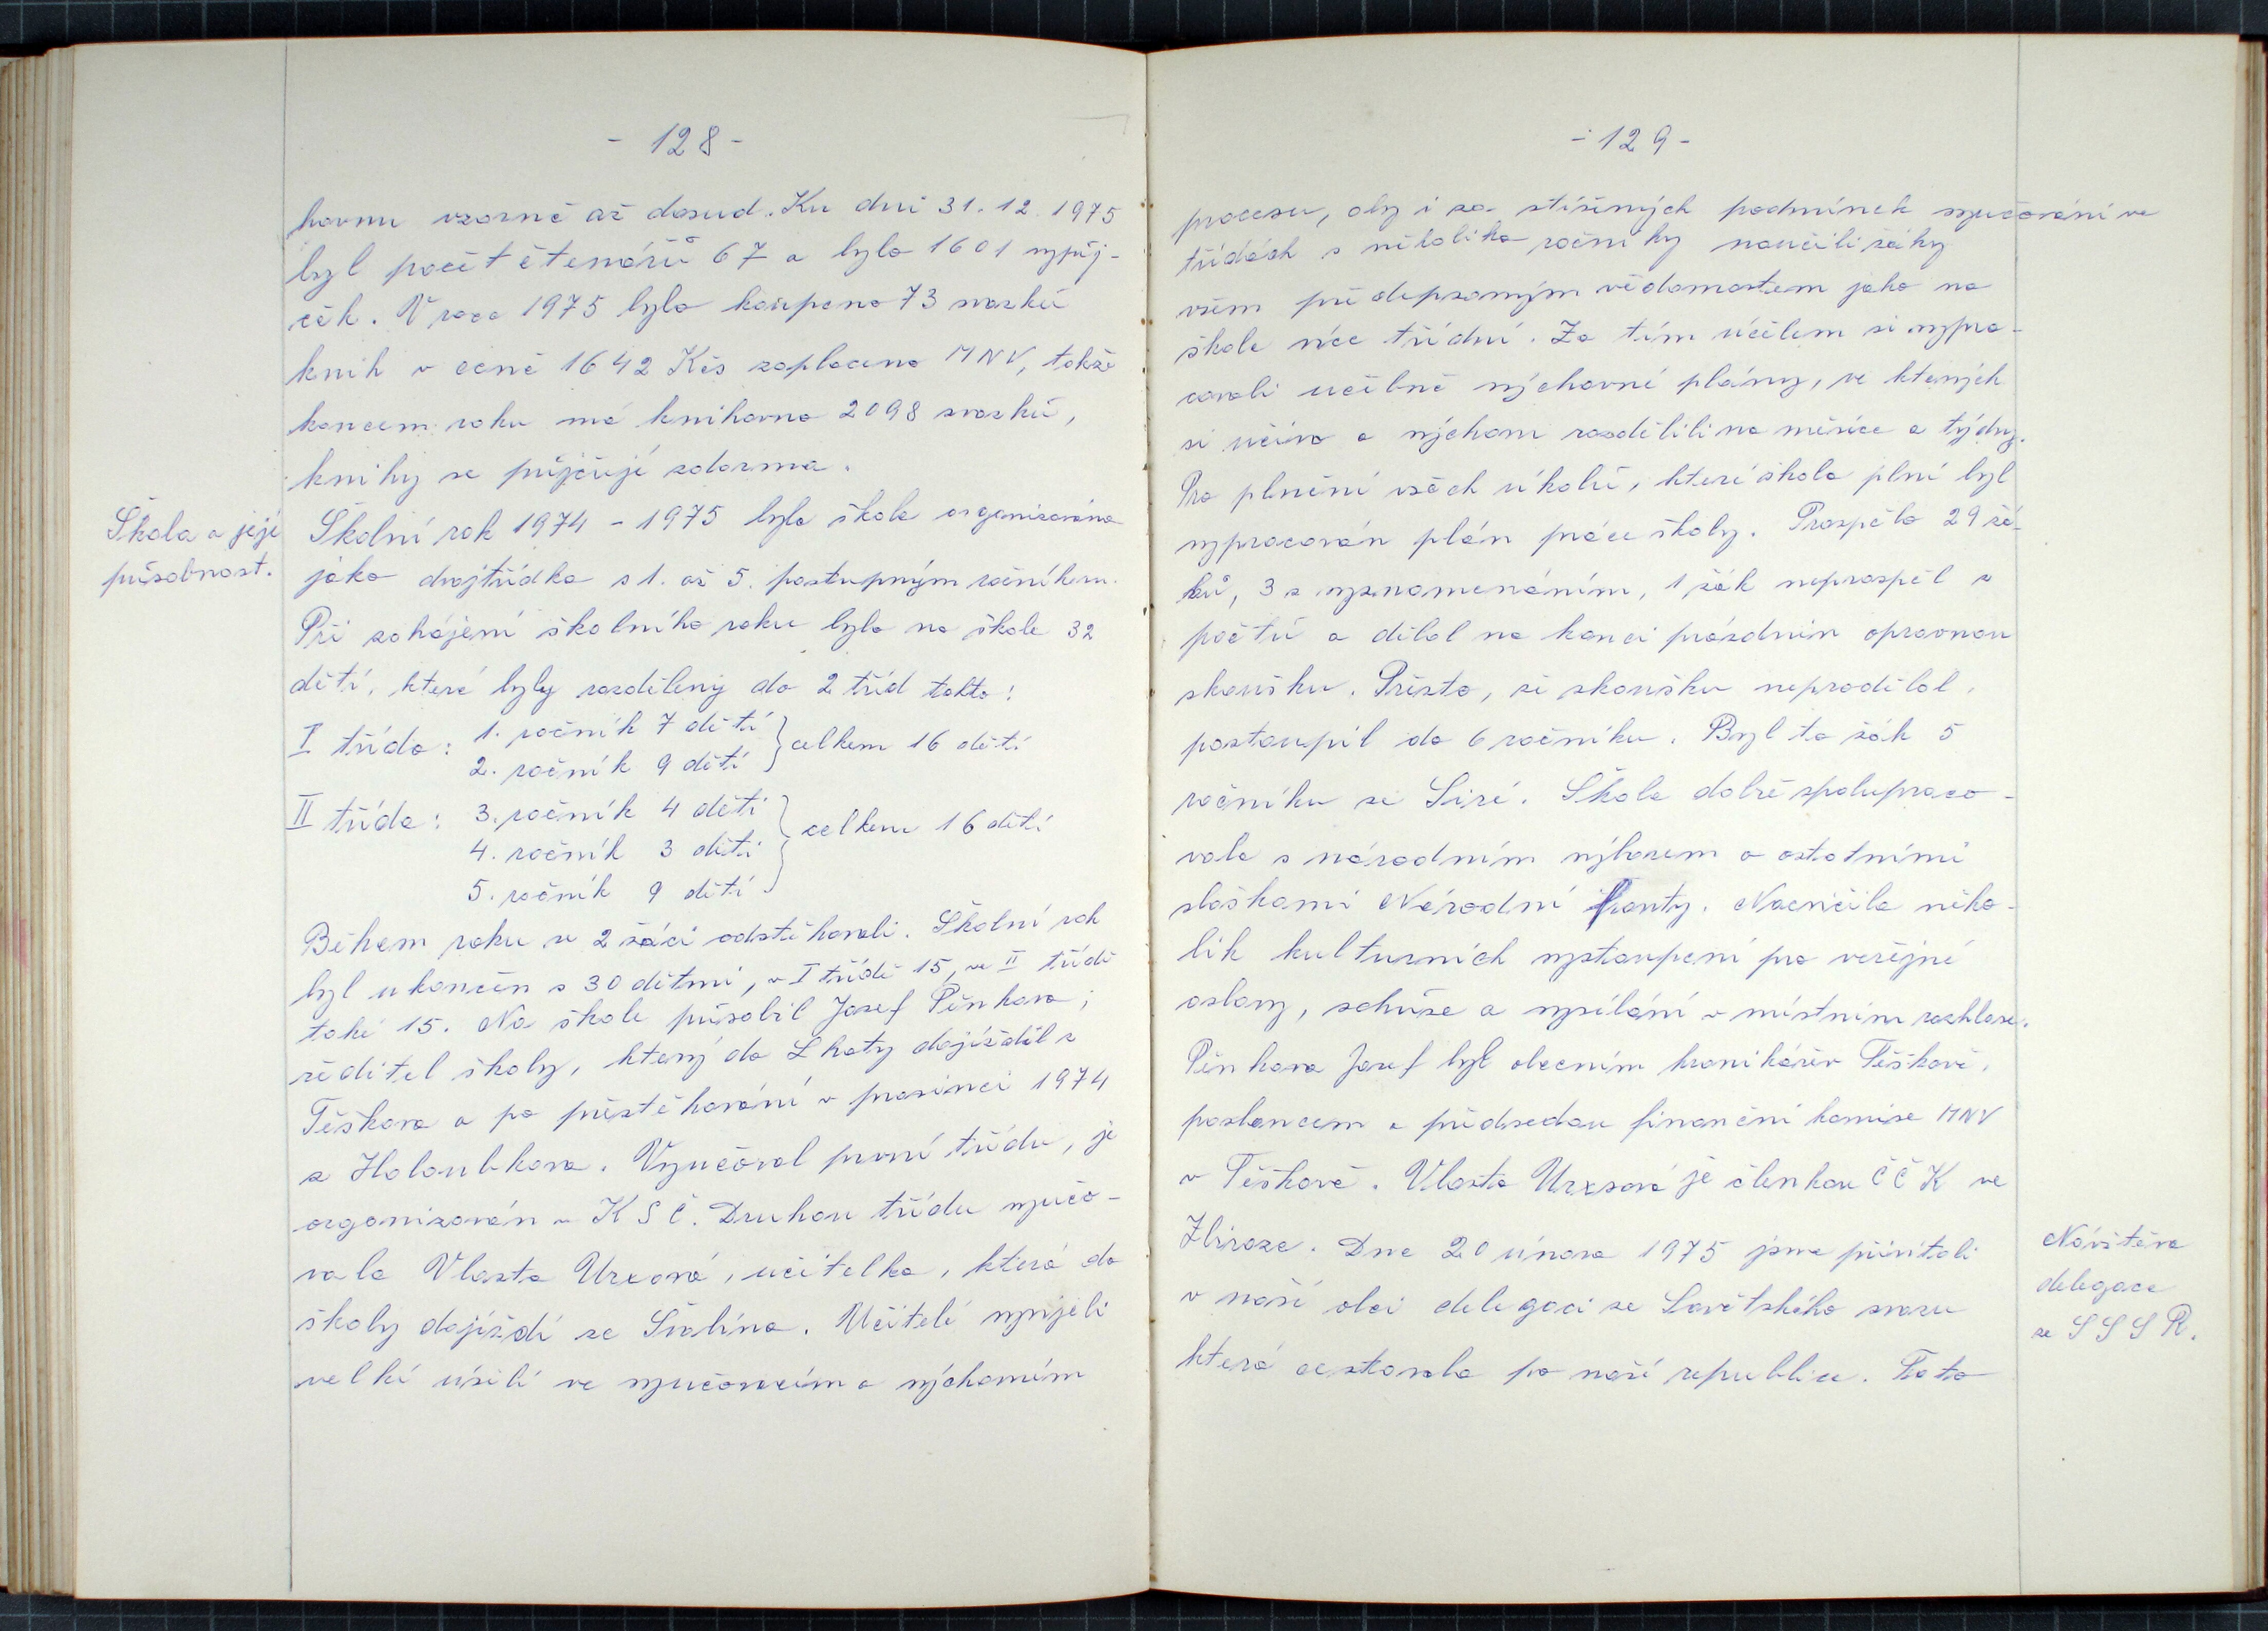 - 128 -
hovnu vzorně až dosud. Ku dni 31. 12. 1975
byl počet čtenářů 67 a bylo 1601 vypůj-
ček. V roce 1975 bylo koupeno 73 svazků
knih v ceně 1642 Kčs zaplaceno MNV, takže
koncem roku má knihovna 2098 svazků,
knihy se půjčují zdarma.
Škola a její
působnost.
Školní rok 1974 - 1975 byla škola organisována
jako dvojtřídka s 1. až 5. postupným ročníkem.
Při zahájení školního roku bylo na škole 32
dětí, které byly rozděleny do 2 tříd takto:
I třída: 1. ročník 7 dětí
2. ročník 9 dětí } celkem 16 dětí
II třída: 3. ročník 4 děti
4. ročník 3 děti } celkem 16 dětí
5. ročník 9 dětí
Během roku se 2 žáci odstěhovali. Školní rok
byl ukončen s 30 dětmi, v I třídě 15, ve II třídě
také 15. Na škole působil Josef Pěnkava;
ředitel školy, který do Lhoty dojížděl z
Těškova a po přestěhování v prosinci 1974
z Holoubkova. Vyučoval první třídu, je
organizován v KSČ. Druhou třídu vyučo-
vala Vlasta Urxová, učitelka, která do
školy dojíždí ze Švabína. Učitelé vyvíjeli
velké úsilí ve vyučovacím a výchovním
- 129 -
procesu, aby i za stížených podmínek vyučování ve
třídách s několika ročníky naučili žáky
všem předepsaným vědomostem jako na
škole více třídní. Za tím účelem si vypra-
covali učebně výchovné plány, ve kterých
si učivo a výchovu rozdělili na měsíce a týdny.
Pro plnění všech úkolů, které škola plní byl
vypracován plán práce školy. Prospělo 29 žá-
ků, 3 s vyznamenáním, 1 žák neprospěl z
počtů a dělal na konci prázdnin opravnou
zkoušku. Přesto, že zkoušku neprodělal,
postoupil do 6 ročníku. Byl to žák 5
ročníku ze Siré. Škola dobře spolupraco-
vala s národním výborem a ostatními
složkami Národní fronty. Nacvičila něko-
lik kulturních vystoupení pro veřejné
oslavy, schůze a vysílání v místním rozhlase.
Pěnkava Josef byl obecním kronikářév Těškově,
poslancem a předsedou finanční komise MNV
v Těškově. Vlasta Urxsová je členkou ČČK ve
Zbiroze. Dne 20 února 1975 jsme přivítali
v naší obci delegaci ze Sovětského svazu
která cestovala po naší republice. Tato
Návštěva
delegace
ze SSSR.